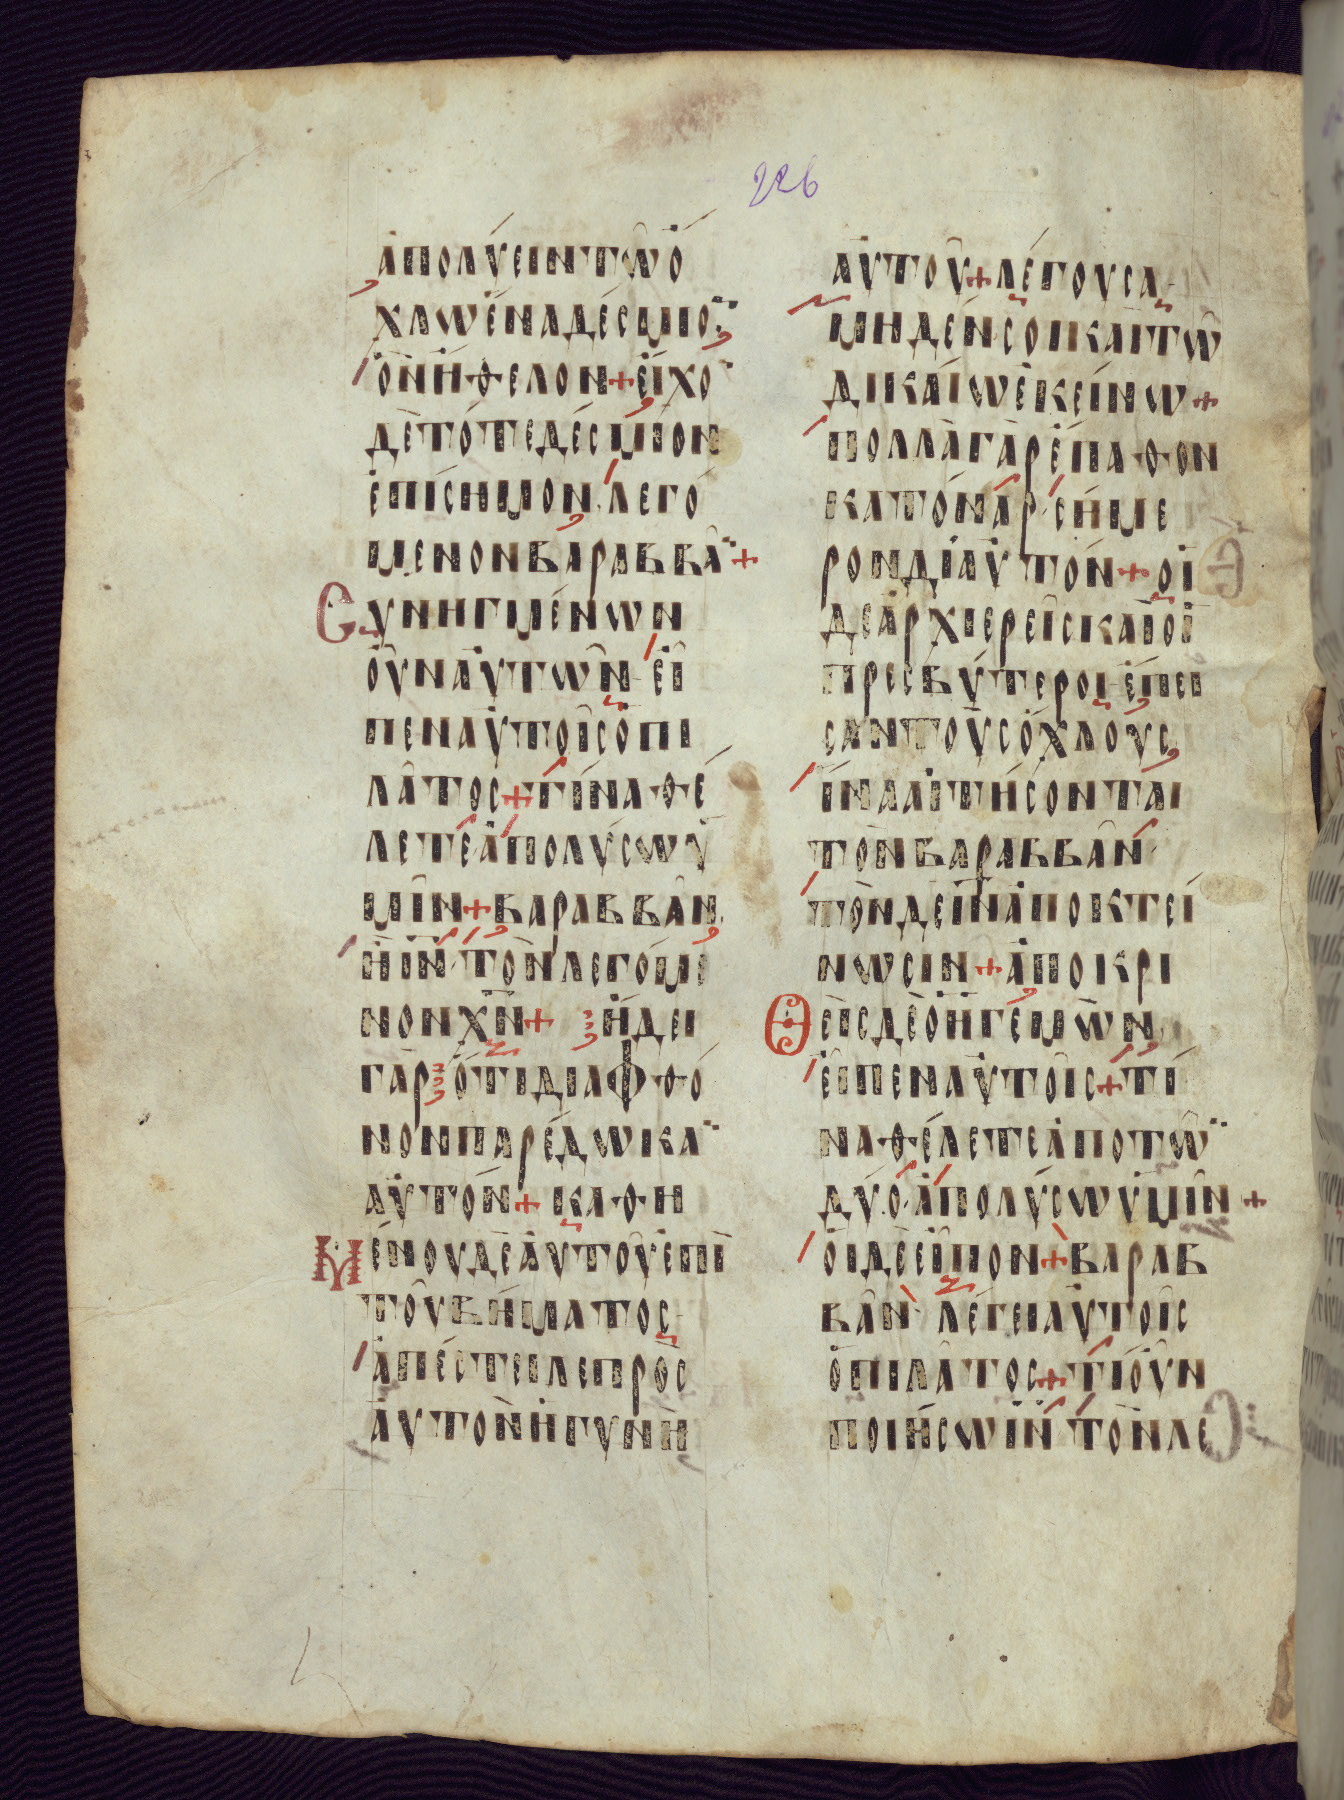 226
ἀπολύειν τῶ ὄ
χλω ἕνα δέσμιο̈
ὃν ἤθελον + εἶχο̈
δὲ τότε δέσμιον
ἐπίσημον. λεγό
μενον βαραββᾶ̈ +
Συνηγμένων
οὖν αὐτῶν· εἶ
πεν αὐτοῖς ὁ πι
λᾶτος + τίνα θέ
λετε ἀπολύσω ὑ
μῖν + βαραββᾶν.
ἢ ιν̄ τὸν λεγόμε
νον χν̄ + ἤδει
γὰρ ὅτι διὰ φθό
νον παρέδωκα̈
αὐτόν + καθη
Μένου δὲ αὐτοῦ ἐπὶ
τοῦ βήματος·
ἀπέστειλε πρὸς
αὐτὸν ἡ γυνὴ
αὐτοῦ + λέγουσα·
μηδὲν σοι καὶ τῶ
δικαίω ἐκείνω +
πολλὰ γὰρ ἔπαθον
κατόναρ σήμε
ρον δι αὐτόν + οἱ
δε ἀρχιερεῖς καὶ οἱ
πρεσβύτεροι· ἔπει
σαν τοὺς ὄχλους
ἵνα αἰτήσονται
τὸν βαραββᾶν·
τὸν δε ιν̄ ἀποκτεί
νωσιν + ἀποκρι
Θεὶς δὲ ὁ ἡγεμὼν.
εἶπεν αὐτοῖς + τί
να θέλετε ἀπο τῶ̈
δύο· ἀπολύσω ὑμῖν +
ὁι δε εἶπον + βαραβ
βᾶν· λέγει αὐτοῖς
ὁ πιλᾶτος + τί οὖν
ποιήσω ιν̄ τὸν λε